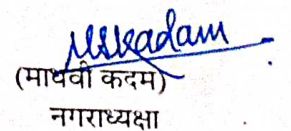 MSKadam
(माधवी कदम)
नगराध्यक्षा